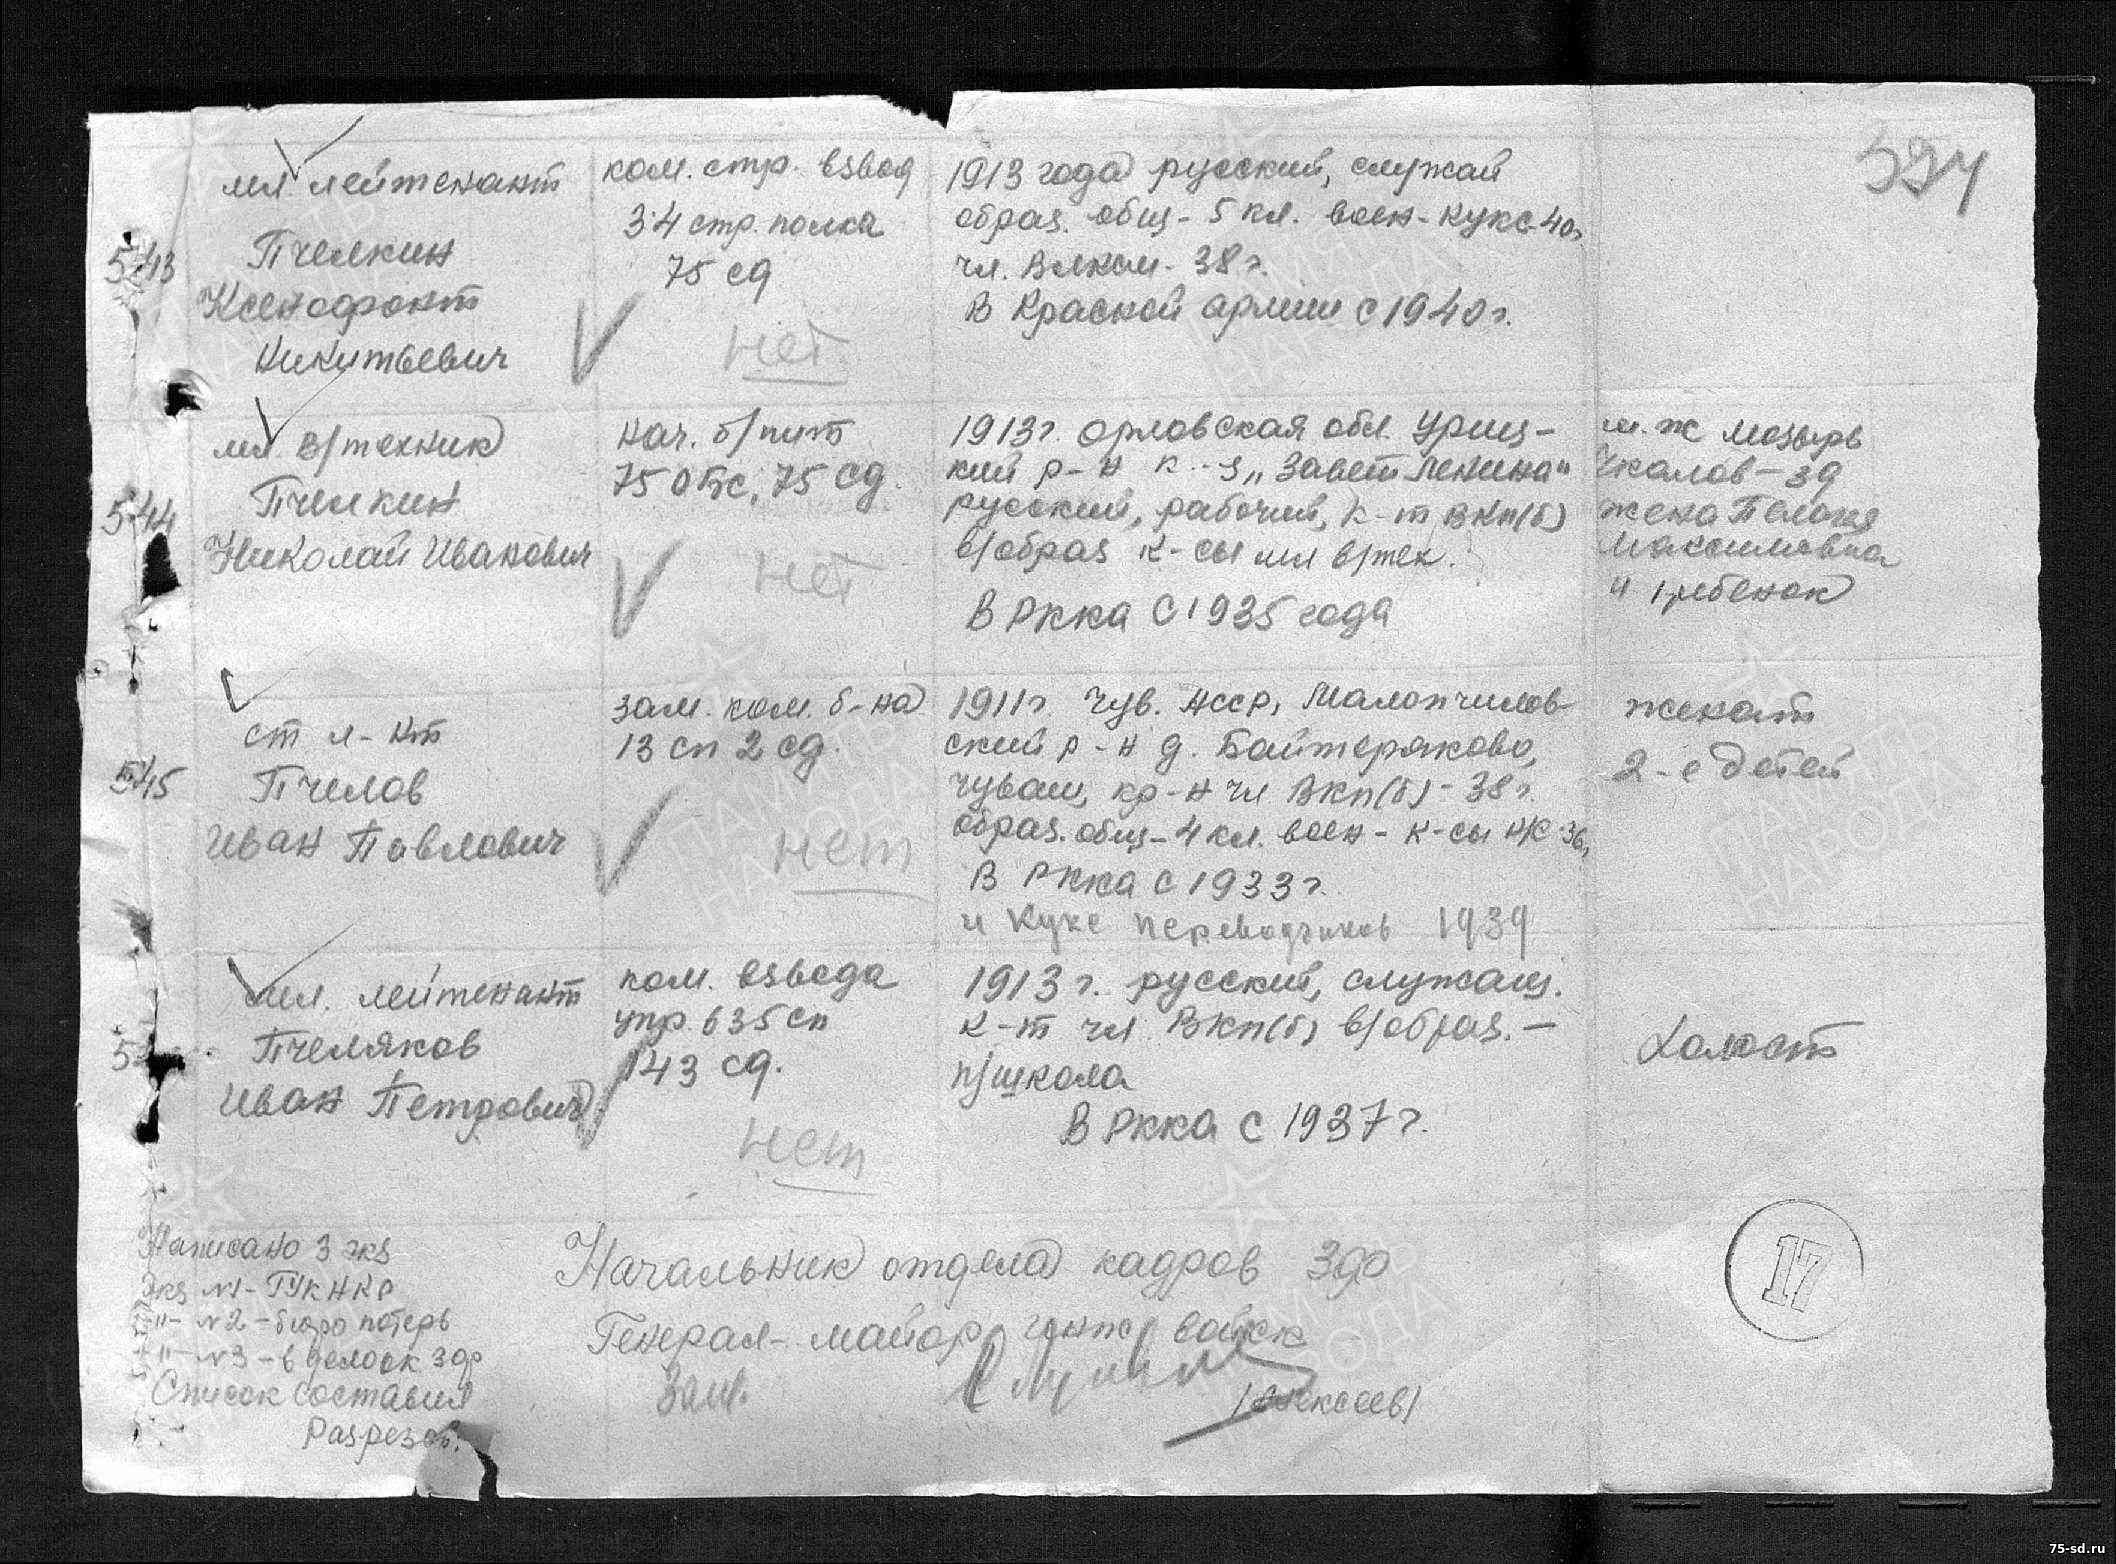 394
мл. лейтенант
5413
Пчелкин
Ксенофонт
Никитьевич
ком. стр. взвод
34 стр. полка
75 сд
нет
1913 года русский, служащ
образ. общ - 5 кл. воен - Кукс-40г
чл. Влксм - 38 г.
В Красной армии с 1940г.
мл. в/техник
5414
Пчелкин
Николай Иванович
нач. б/пит
75 обс, 75 сд.
нет
1913г. Орловская обл. Уриц-
кий р-н к-з „Завет Ленина"
русский, рабочий, к-т ВКп(б)
в/образ к-сы мл в/тех.
В Ркка с 1935 года
м. ж Мозырь
Чкалов - 39
жена Пелагея
Максимовна
и 1 ребенок
ст л-нт
5415
Пчелов
Иван Павлович
зам. ком. б-на
13 сп 2 сд.
нет
1911г Чув. АССР,
ский р-н д. Байтеряково,
чуваш, кр-н чл ВКп(б) - 38 г.
образ. общ - 4 кл. воен - к-сы 36г
В Ркка с 1933г.
и Кукс переводчиков 1939
женат
2-е детей
мл. лейтенант
Пчеляков
Иван Петрович
ком. взвода
упр. 635 сп
143 сд.
нет
1913 г. русский, служащ.
к-т чл ВКп(б) в/образ. -
п/школа
В Ркка с 1937г.
Холост
Написано 3 экз
экз №1 - ГУК НКО
-"- №2 - бюро потерь
-"- №3 - в дело ок Зфр
Список составил
Начальник отдела кадров Зфо
Генерал-майор инж войск
/Алексеев/
17
ПАМЯТЬ НАРОДА
75-sd.ru